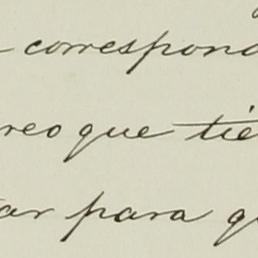 correspond
reo que tie
ar para q